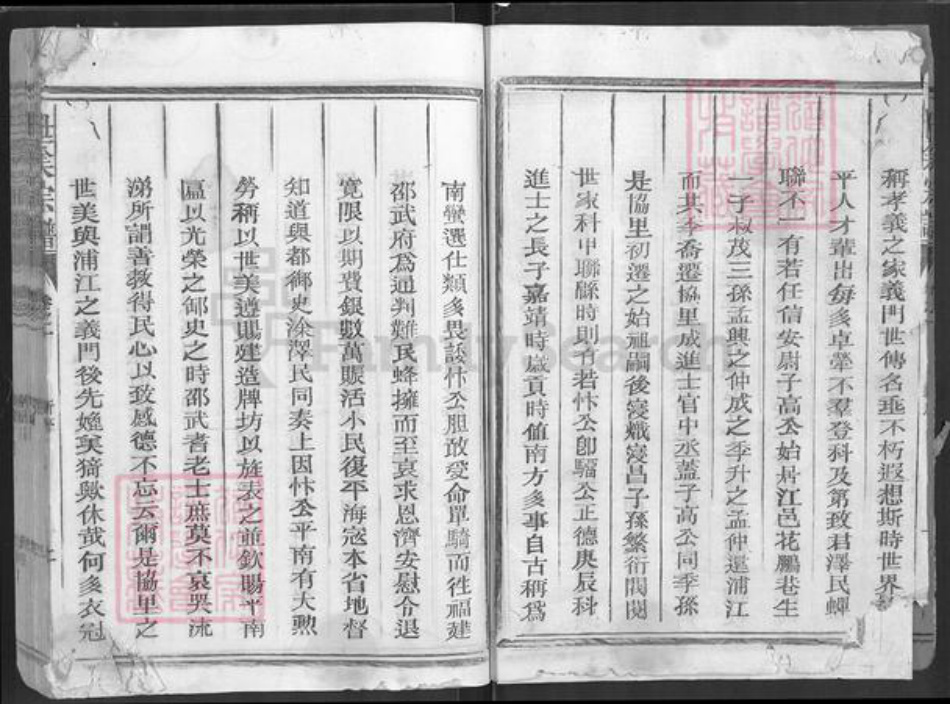 稱孝義之家義門世傳名垂不朽遐想斯時世界
平人才輩出每多卓犖不羣登科及第致君澤民蟬
聯不一有若任信安尉子高公始居江邑花鵬巷生
一子叔茂三孫孟興之仲威之季升之孟仲還浦江
而其季喬遷協里成進士官中丞蓋子高公同季孫
是協里初遷之始祖嗣後寖熾寖昌子孫繁衍閥閱
世家科甲聯緜時則有若忭公卽驑公正德庚辰科
進士之長子嘉靖時歲貢時値南方多事自古稱爲
南蠻選仕類多畏諉忭公胆敢受命單騎而徃福建
邵武府爲通判難民蜂擁而至哀求恩濟安慰令退
寛限以期費銀數萬賑活小民復平海寇本省地督
知道與都御史涂澤民同奏上因忭公平南有大勲
勞稱以世美遵賜建造牌坊以旌表之並欽賜平南
區以光榮之卹史之時邵武耆老士庶莫不哀哭流
涕所謂善教得民心以致感德不忘云爾是協里之
世美與浦江之義門後先媲美猗歟休哉何多衣冠
宗譜
FamilySearch